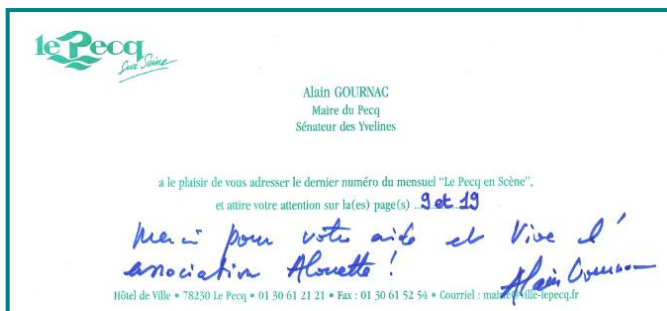 le Pecq
sur Seine
Alain GOURNAC
Maire du Pecq
Sénateur des Yvelines
a le plaisir de vous adresser le dernier numéro du mensuel "Le Pecq en Scène",
et attire votre attention sur la(es) page(s) ..9 et 19
Merci pour votre aide et Vive l'
association Alouette !
Alain Gournac
Hôtel de Ville • 78230 Le Pecq • 01 30 61 21 21 • Fax : 01 30 61 52 54 • Courriel : mairie@ville-lepecq.fr